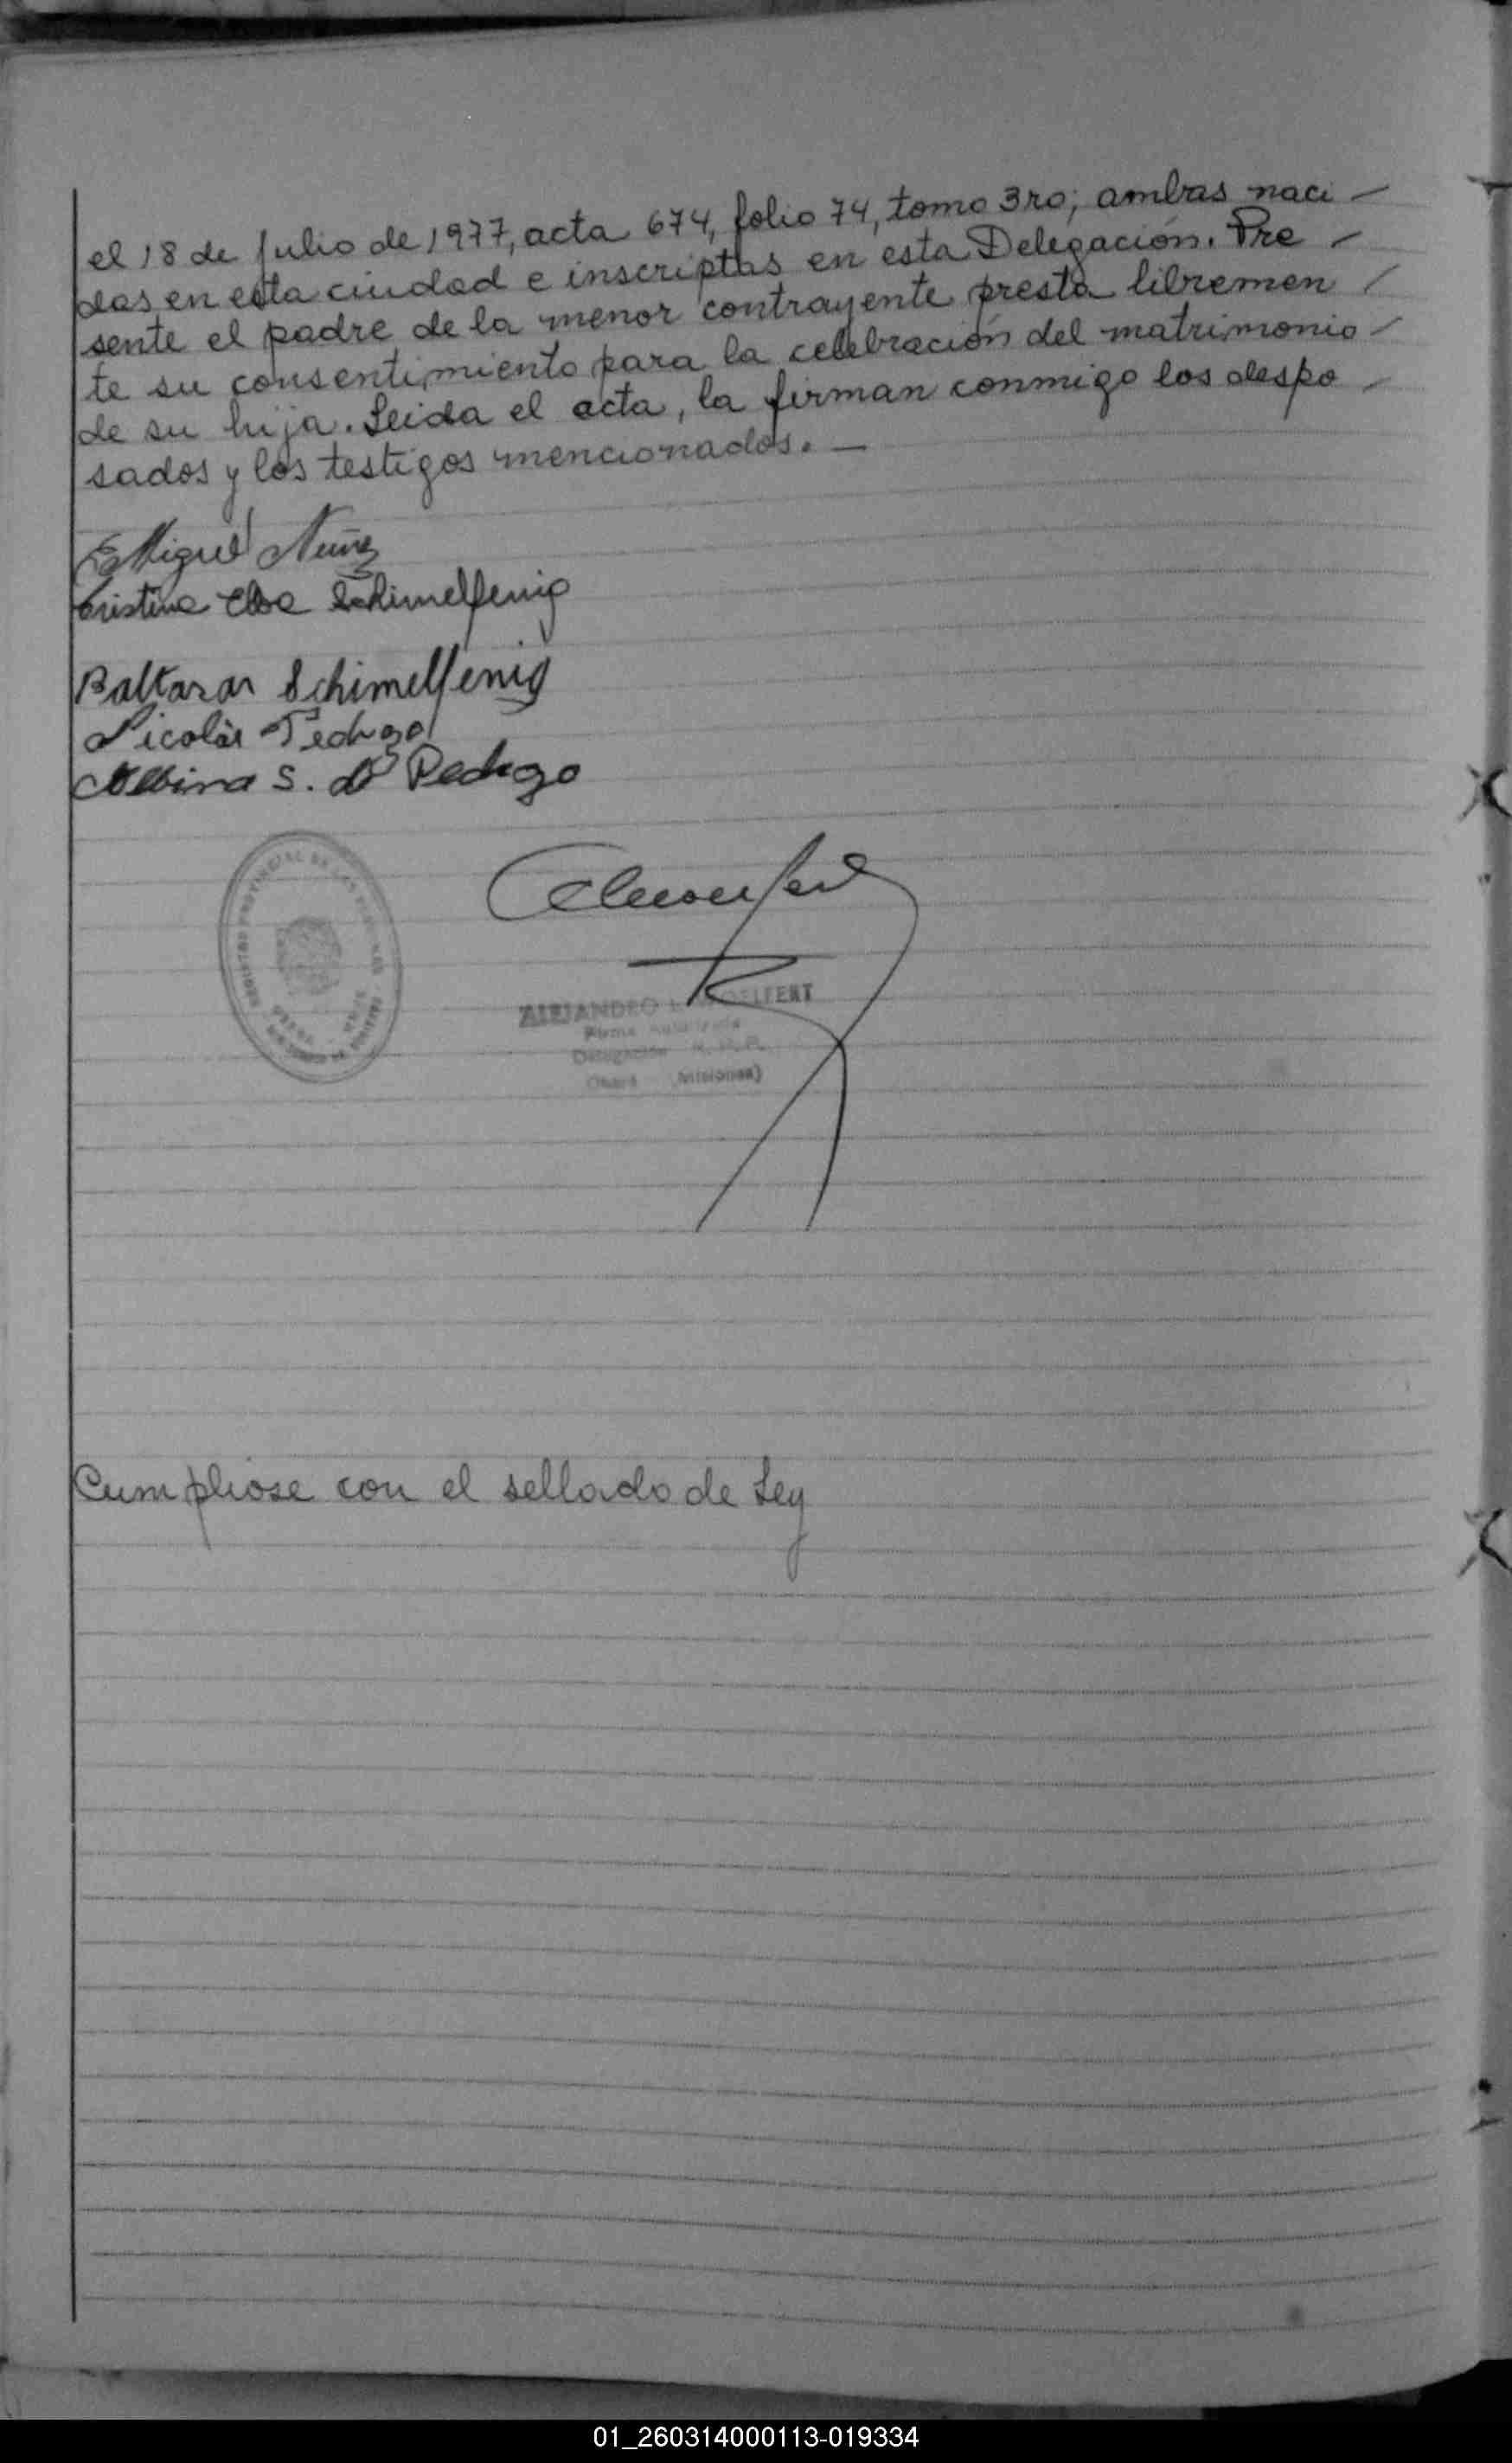 el 18 de Julio de 1977, acta 674, folio 74, tomo 3ro; ambas naci -
das en esta ciudad e inscriptas en esta Delegación. Pre -
sente el padre de la menor contrayente presta libremen /
te su consentimiento para la celebración del matrimonio -
de su hija. Leida el acta, la firman conmigo los despo -
sados y los testigos mencionados. —
Miguel Nuñez
Cristina Elsa Schimelfenig
Baltazar Schimelfenig
Nicolás Pedrozo
Albina S. d Pedrozo
REGISTRO PROVINCIAL DE LAS PERSONAS
ALEJANDRO
Firma Autorizada
Delegación R. P. P.
Oberá (Misiones)
Cumpliose con el sellado de Ley
01_260314000113-019334